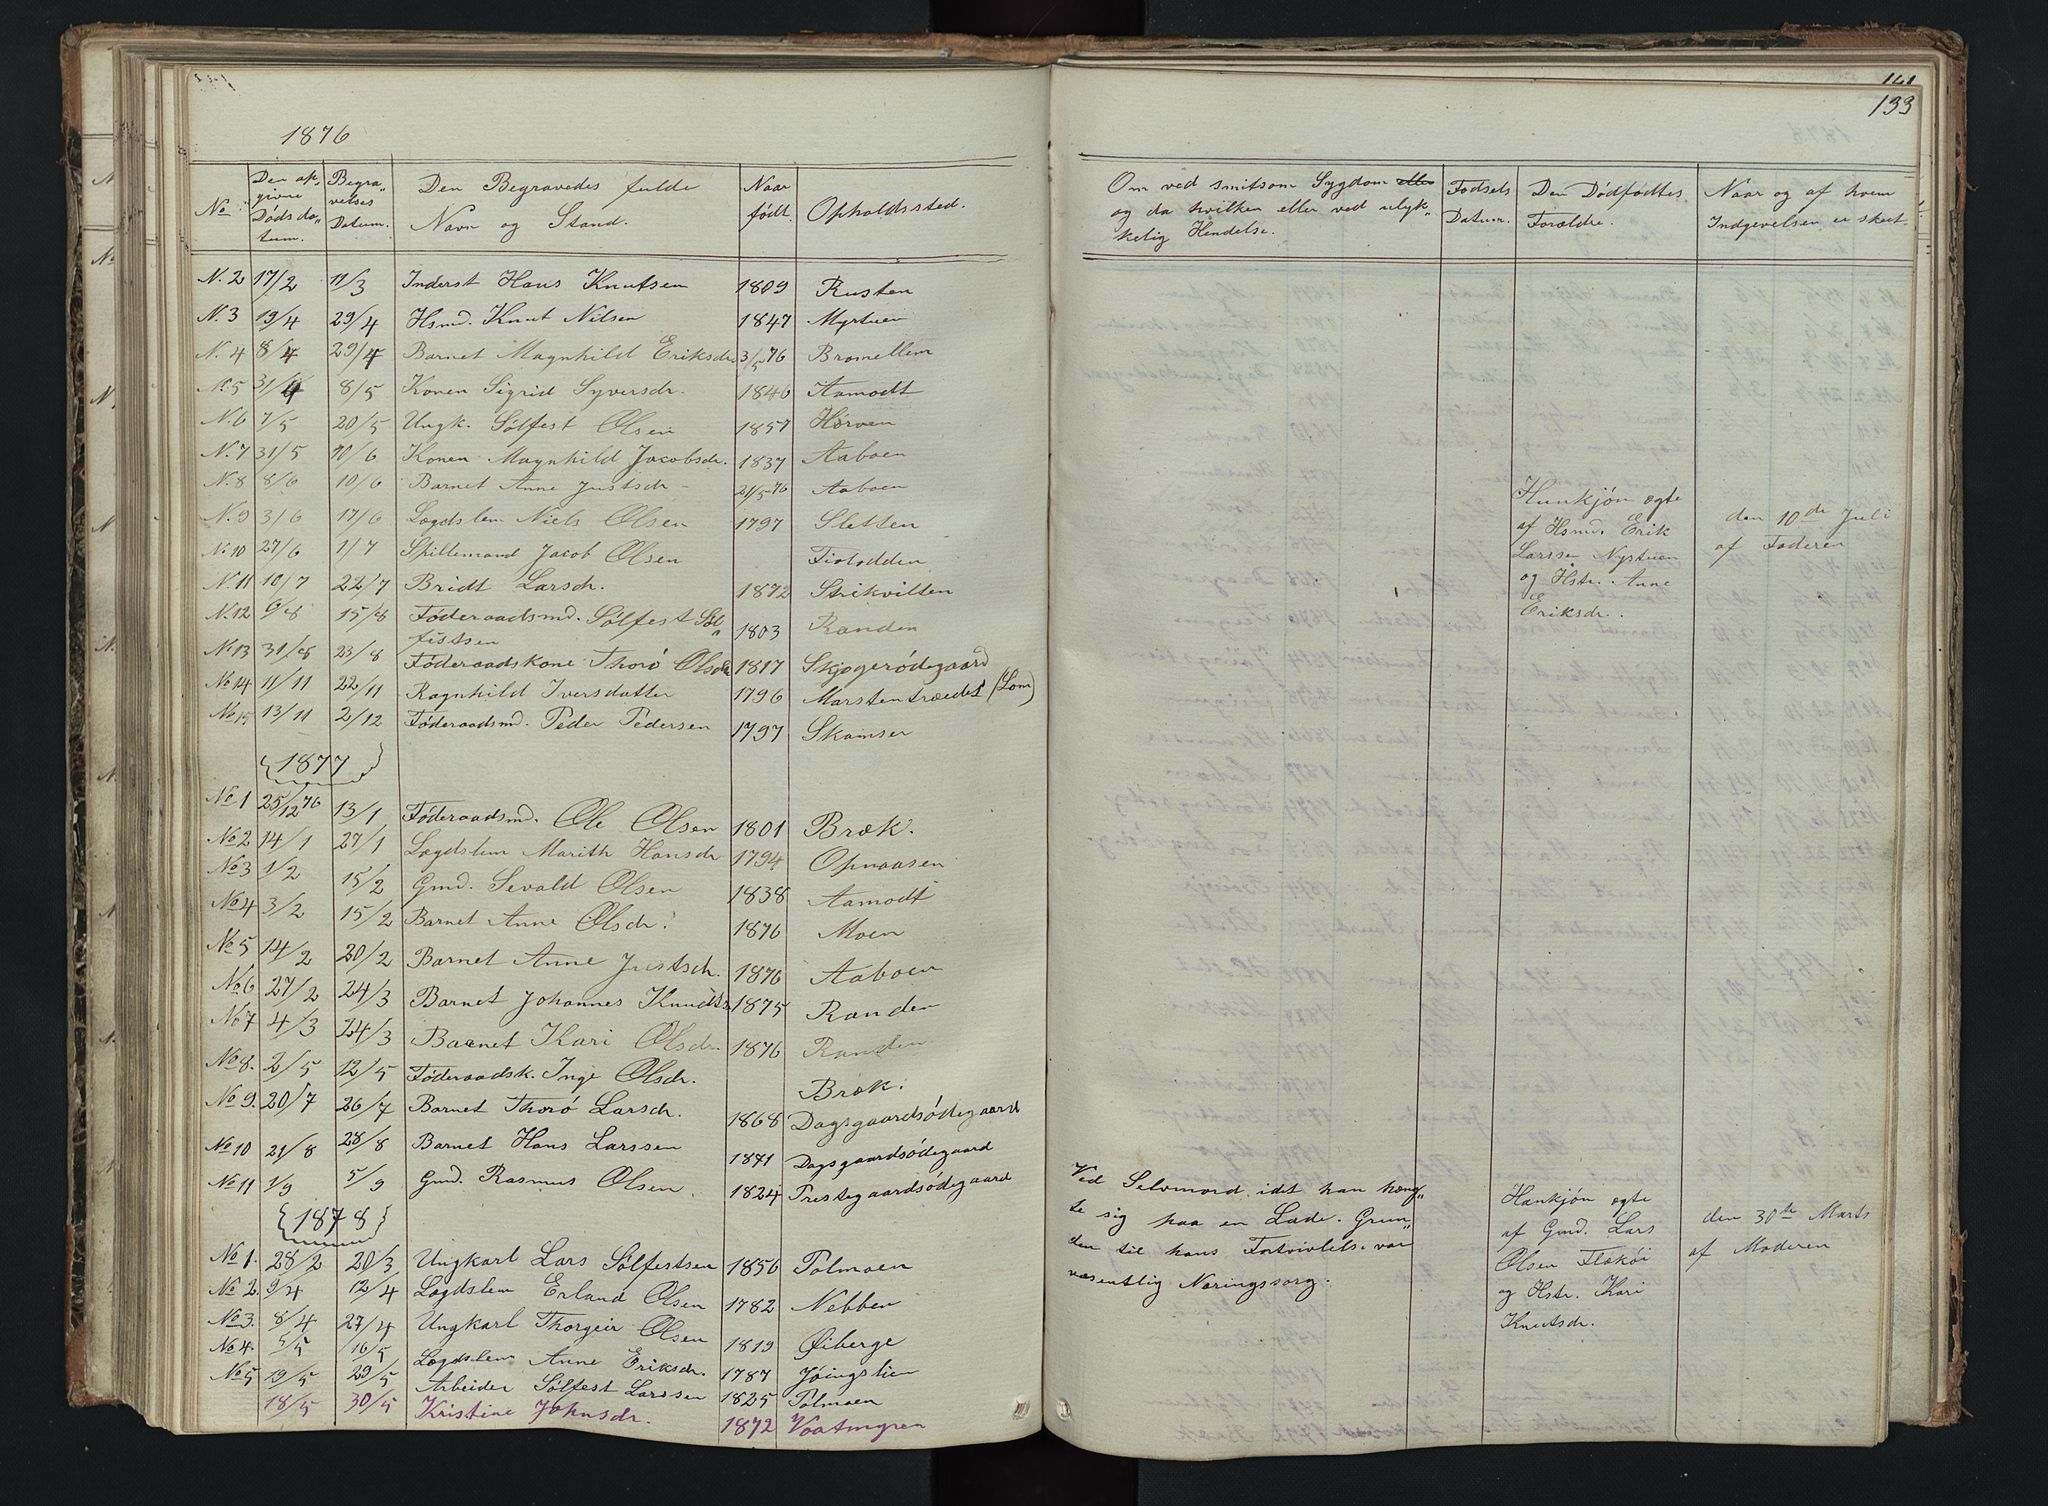 1876
No | Den opgivne Dødsdatum. | Begravelses Datum. | Den Begravedes fulde Navn og Stand. | Naar født. | Opholdssted.
N. 2 17/2 11/3 Inderst Hans Knutsen 1809 Rusten
N. 3 19/4 29/4 Hsmd. Knut Nilsen 1847 Myrtuen
N. 4 8/4 29/4 Barnet Magnhild Eriksdr 3/5 76 Bromellem
N. 5 31/4 8/5 Konen Sigrid Syversdr. 1846 Aamodt
N. 6 7/5 20/5 Ungk. Sølfest Olsen 1857 Hørven
N. 7 31/5 10/6 Konen Magnhild Jacobsdr. 1837 Aaboen
N. 8 8/6 10/6 Barnet Anne Justsdr - 21/5 76 Aaboen
N. 9 3/6 17/6 Lægdslem Niels Olsen 1797 Sletten
No 10 27/6 1/7 Spillemand Jacob Olsen Tiolodden
N. 11 10/7 22/7 Bridt Larsdr. 1872 Strikvilten
N. 12 9/8 15/8 Føderaadsmd. Sølfest Søl„
festsen 1803 Randen
No 13 31/8 23/8 Føderaadskone Thorø Olsdr 1817 Skjøgerødegaard
No 14 11/11 22/11 Ragnhild Iversdatter 1796 Marstentrædet (Lom)
No 15 13/11 2/12 Føderaadsmd. Peder Pedersen 1797 Skamser
1877
No 1 25/12 76 13/1 Føderaadsmd. Ole Olsen 1801 Bræk.
No 2 14/1 27/1 Lægdslem Marith Hansdr 1794 Opnaasen
No 3 1/2 15/2 Gmd. Sevald Olsen 1838 Aamodt
No 4 3/2 15/2 Barnet Anne Olsdr. 1876 Moen
No 5 14/2 20/2 Barnet Anne Justsdr. 1876 Aaboen
No 6 27/2 24/3 Barnet Johannes Knudts 1875 Randen
No 7 4/3 24/3 Barnet Kari Olsdr. 1876 Randen
No 8. 2/5 12/5 Føderaadsk. Inge Olsdr. Bræk.
No 9. 20/7 26/7 Barnet Thorø Larsdr. 1868 Dagsgaardsødegaard
No 10 21/8 28/8 Barnet Hans Larssen 1871 Dagsgaardsødegaard
No 11 1/9 5/9 Gmd. Rasmus Olsen. 1824 Prestegaardsødegaard
1878
No 1. 28/2 20/3 Ungkarl Lars Sølfestsen 1856 Tolmoen
No 2. 9/4 12/4 Lægdslem Erland Olsen 1782 Nebben
No 3. 8/4 27/4 Ungkarl Thorgeir Olsen 1819 Øiberge
No 4. 5/5 16/5 Lægdslem Anne Eriksdr. 1787 Jøingslien
No 5 19/5 29/5 Arbeider Sølfest Larssen 1825 Tolmoen
18/5 30/5 Kristine Johnsdr. 1872 Vaatmyren
141
133
Om ved smitsom Sygdom eller
og da hvilken eller ved ulyk„
kelig Hendelse.
Fødsels
Datum.
Den Dødfødtes
Forældre.
Naar og af hvem
Indgivelsen er skeet.
Hunkjøn ægte
af Hsmd. Erik
Larssen Nystuen
og Hstr. Anne
Eriksdr.
den 10de Juli
af Faderen
Ved Selvmord, idet han hæng„
te sig paa en Lade. Grun„
den til hans Fortvivlelse var
væsentlig Næringssorg.
Hankjøn ægte
af Gmd. Lars
Olsen Flækøi
og Hstr. Kari
Knutsdr.
den 30te Marts
af Moderen